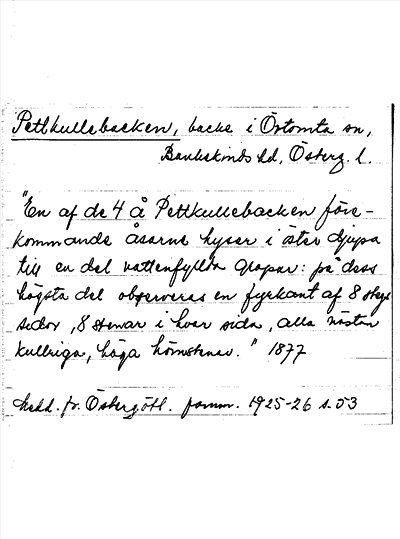 Pettkullebacken, backe i Örtomta sn,
Bankekinds hd, Österg. l.
"En af de 4 å Pettkullebacken före-
kommande åsarne hyser i öster djupa
till en del vattenfyllda gropar: på dess
högsta del observeras en fyrkant af 8 stegs
sidor, 8 stenar i hvar sida, alla nästan
kullriga, höga hörnstenar." 1877
Medd. fr. Östergötl. fornm. 1925-26 s. 53